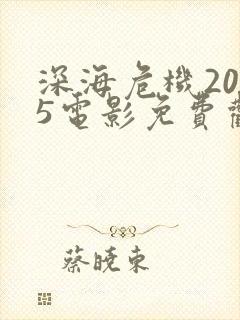 深海危機20
5電影免費
蔡曉東